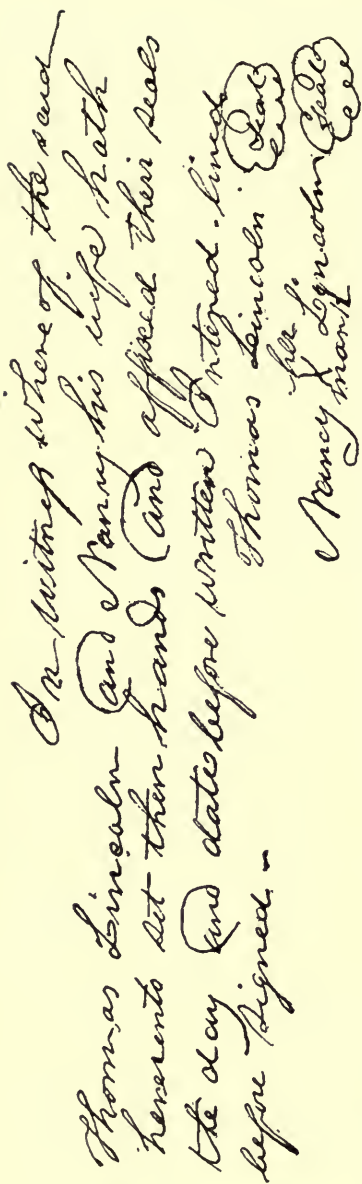 In Witness where of the said
Thomas Lincoln and Nancy his wife hath
hereunto set their hands and affixed their seals
the day and date before written Entered. lined
before signed. – Thomas Lincoln Seal
her
Nancy Lincoln Seal
mark